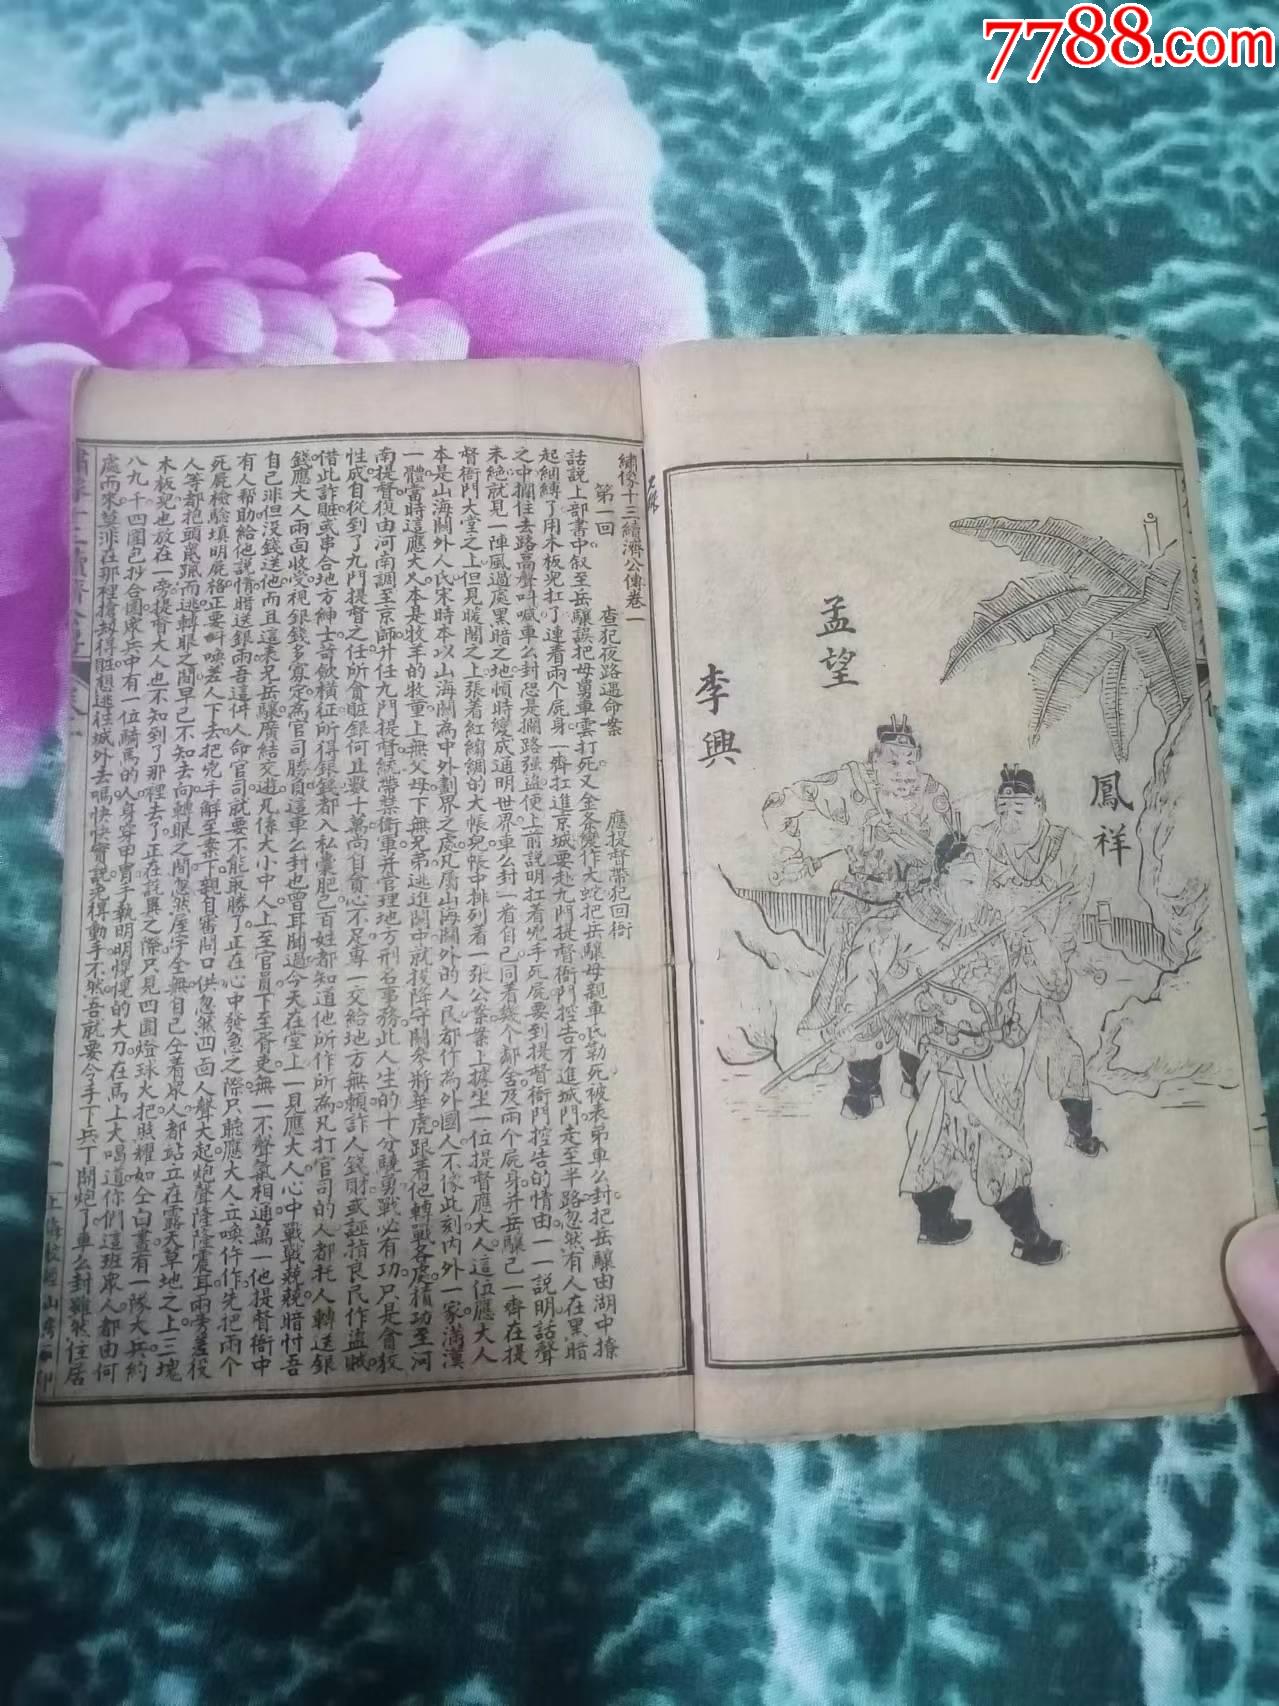 7788.com
孟望
李興
鳳祥
繡像十三續濟公傳卷一
第一回 查犯夜路逼命案 應提督帶犯回衙
話說上部書中叙至岳驤誤把母舅車雲打死又金条變作大蛇把岳驤母親車氏勒死被表弟車么封把岳驤由湖中撩
起綑縛了用木板兜扛了連着兩个屍身一齊扛進京城要赴九門提督衙門控告才進城門走至半路忽然有人在黑暗
之中攔住去路高聲叫喊車么封恐是攔路强盜便上前說明扛着兇手死屍要到提督衙門控告的情由一一說明話聲
未絶就見一陣風過處黑暗之地頓時變成通明世界車么封一看自己同着幾个鄰舍及兩个屍身并岳驤已一齊在提
督衙門大堂之上但見暖閣之上張着紅縐綢的大帳兜帳中排列着一張公案案上據坐一位提督應大人這位應大人
本是山海關外人氏宋時本以山海關為中外劃界之處凡屬山海關外的人民都作為外國人不像此刻内外一家滿漢
一體當時這應大人本是牧羊的牧童上無父母下無兄弟逃進關中就投降守關叅將華虎跟着他轉戰各處積功至河
南提督復由河南調至京師升任九門提督統帶禁衛軍并官理地方刑名事務此人生的十分驍勇戰必有功只是會救
性成自從到了九門提督之任所貪賍銀何止數十萬尚自貪心不足專一交給地方無賴詐人錢財或誣指良民作盗賊
借此詐賍或串合地方紳士苛歛橫征所得銀錢都入私囊肥己百姓都知道他所作所為凡打官司的人都托人轉送銀
錢應大人兩面收受視銀錢多寡定為官司勝負這車么封也曾耳聞過今天在堂上一見應大人心中戰戰兢兢暗忖吾
自己非但没錢送他而且這表兄岳驤廣結交遊凡係大小中人上至官員下至胥吏無一不聲氣相通萬一他提督衙中
有人帮助給他説情暗送銀兩吾這件人命官司就要不能取勝了正在心中發急之際只聽應大人立喚仵作先把兩个
死屍檢驗填明屍格正要叫喚差人下去把兇手解至案下親自審問口供忽然四面人聲大起炮聲隆隆震耳兩旁差役
人等都抱頭鼠竄而逃轉眼之間早已不知去向轉眼之間忽然屋宇全無自己仝着眾人都站立在露天草地之上三塊
木板兜也放在一旁提督大人也不知到了那裡去了正在詫異之際只見四圍燈球火把照耀如仝白晝有一隊大兵約
八九千四圍包抄合圍來兵中有一位騎馬的人身穿甲冑手執明明幌幌的大刀在馬上大喝道你們這班眾人都由何
處而來莫非在那裡搶刼得賍想逃往城外去嗎快快實説免得動手不然吾就要令手下兵丁開炮了車么封雖然住居